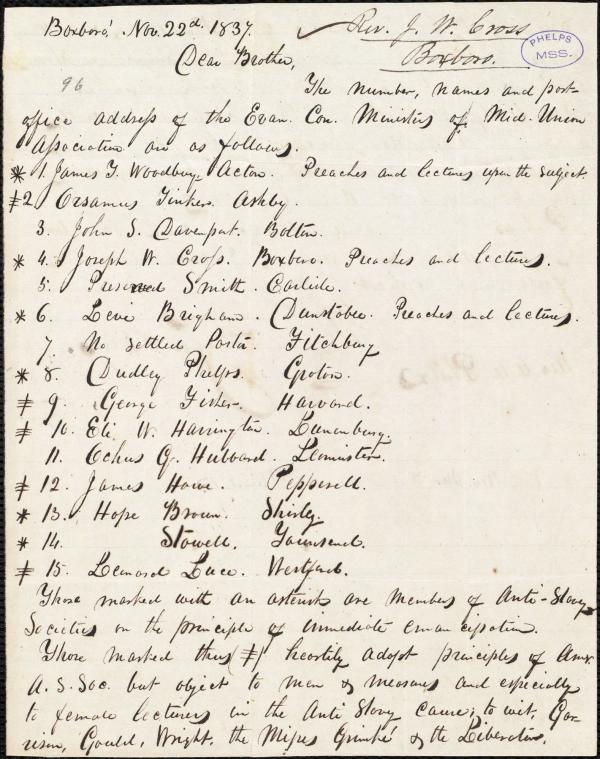 Boxboro' Nov. 22d. 1837.
Rev. J. W. Cross
Boxboro.
PHELPS
MSS.
Dear Brother,
96
The number, names and post-
office address of the Evan. Con. Ministers of Mid. Union
Association are as follows.
* 1. James T. Woodbury. Acton. Preaches and lectures upon the subject.
≠ 2. Orsamus Tinker. Ashby.
3. John S. Davenport. Bolton.
* 4. Joseph W. Cross. Boxboro. Preaches and lectures.
5. Preserved Smith. Carlisle.
* 6. Levi Brigham. Dunstable. Preaches and lectures.
7. No settled Pastor. Fitchburg
* 8. Dudley Phelps. Groton.
≠ 9. George Fisher. Harvard.
≠ 10. Eli W. Harrington. Lunenburg.
11. Ochus G. Hubbard. Leominster.
≠ 12. James Howe. Pepperell.
* 13. Hope Brown. Shirley.
* 14. Stowell. Townsend.
≠ 15. Leonard Luce. Westford.
Those marked with an asterisk are members of Anti-Slavery
Societies on the principle of immediate emancipation.
Those marked thus (≠) heartily adopt principles of Amer.
A. S. Soc. but object to men & measures and especially
to female lecturers in the Anti Slavy cause; to wit, Gar-
rison, Gould, Wright, the Misses Grimké & the Liberator.